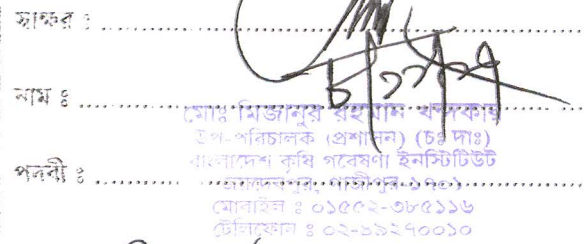 স্বাক্ষর ঃ
নাম ঃ
মোঃ মিজানুর রহমান খন্দকার
উপ-পরিচালক (প্রশাসন) (চঃ দাঃ)
বাংলাদেশ কৃষি গবেষণা ইনস্টিটিউট
পদবী ঃ
জয়দেবপুর, গাজীপুর-১৭০১
মোবাইল ঃ ০১৫৫২-৩৮৫১১৬
টেলিফোন ঃ ০২-৪৯২৭০০১০